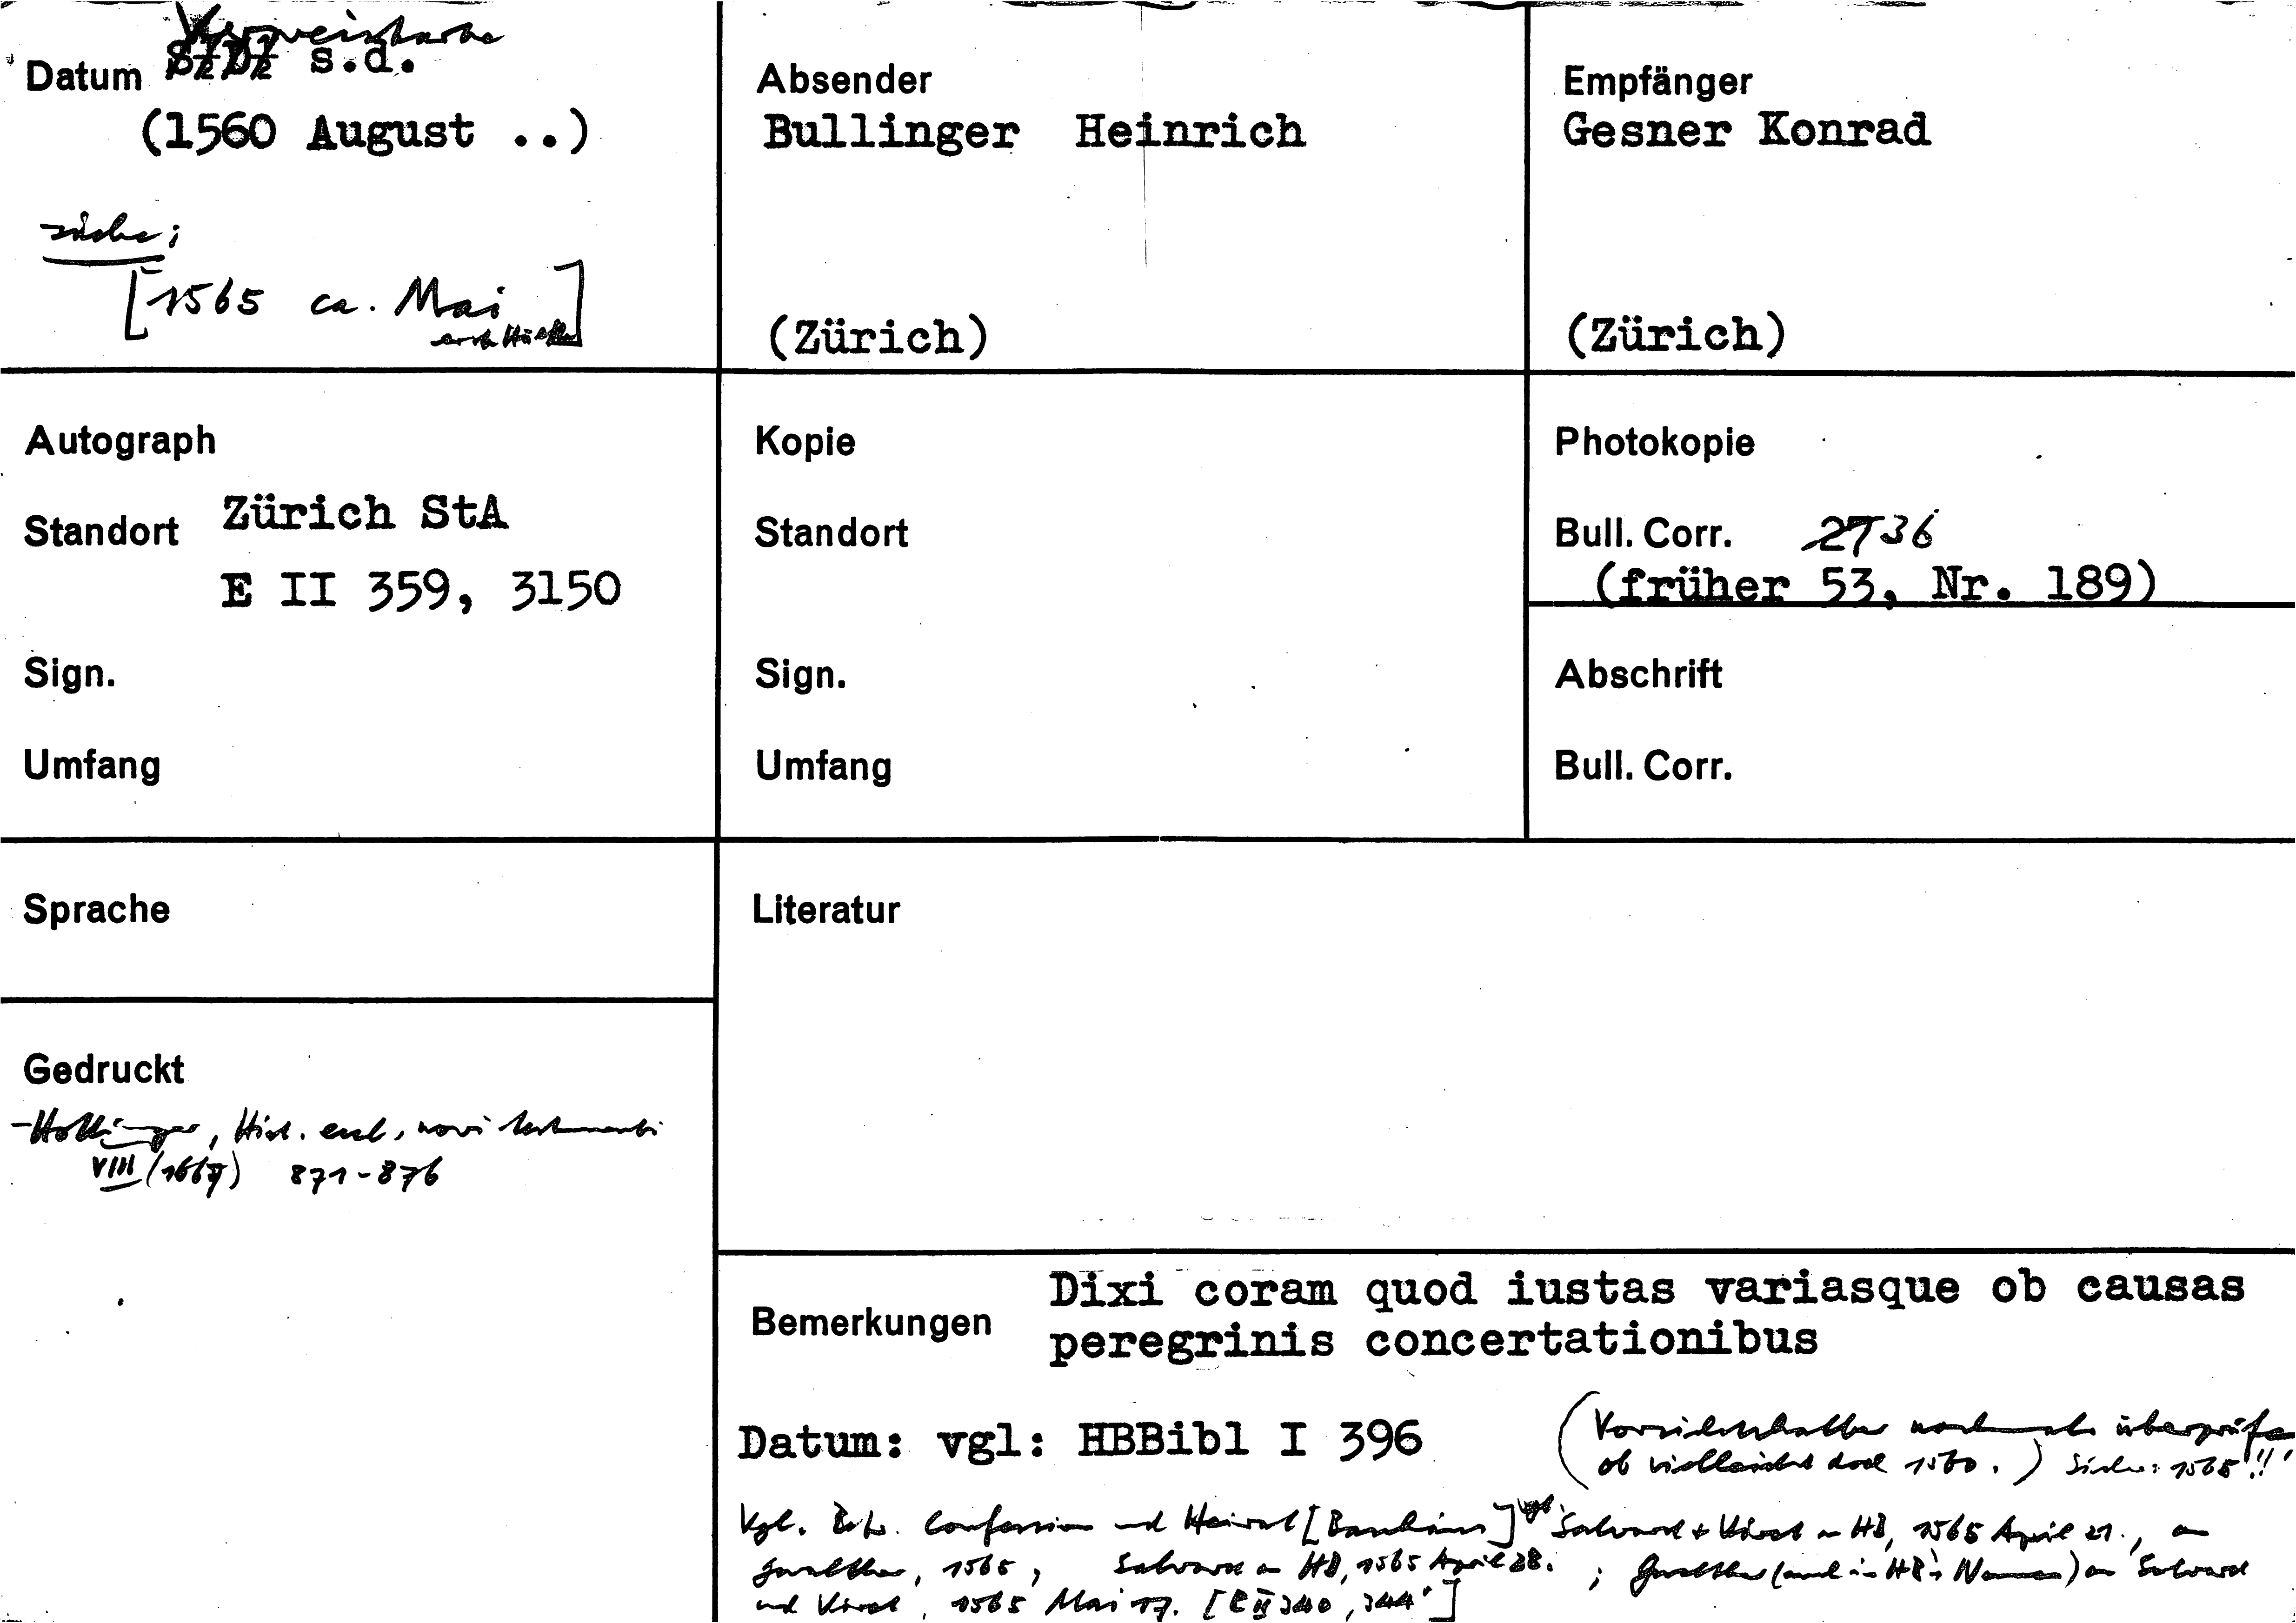 Verweiskarte
Datum s.d.
(1560 August ..)
siehe:
[1565 ca. Mai
erste Hälfte]
Absender
Bullinger Heinrich
(Zürich)
Empfänger
Gesner Konrad
(Zürich)
Autograph
Standort Zürich StA
E II 359, 3150
Sign.
Umfang
Kopie
Standort
Sign.
Umfang
Photokopie
Bull. Corr. 2736
(früher 53, Nr. 189)
Abschrift
Bull. Corr.
Sprache
Literatur
Gedruckt
- Hottinger, Hist. eccl. novi testamenti
VIII (1667) 871-876
Bemerkungen Dixi coram quod iustas variasque ob causas
peregrinis concertationibus
Datum: vgl: HBBibl I 396
(Vorsichtshalber nochmals überprüfen
ob vielleicht doch 1560.) Sicher: 1565!!!
Vgl. Betr. Confession und Heirat [Bauhins] vgl. Salvard + Virel an HB, 1565 April 21., an
Gwalther, 1565, Salvard an HB, 1565 April 28. ; Gwalther (auch in HB's Namen) an Salvard
und Virel, 1565 Mai 17. [E II 340, 344']